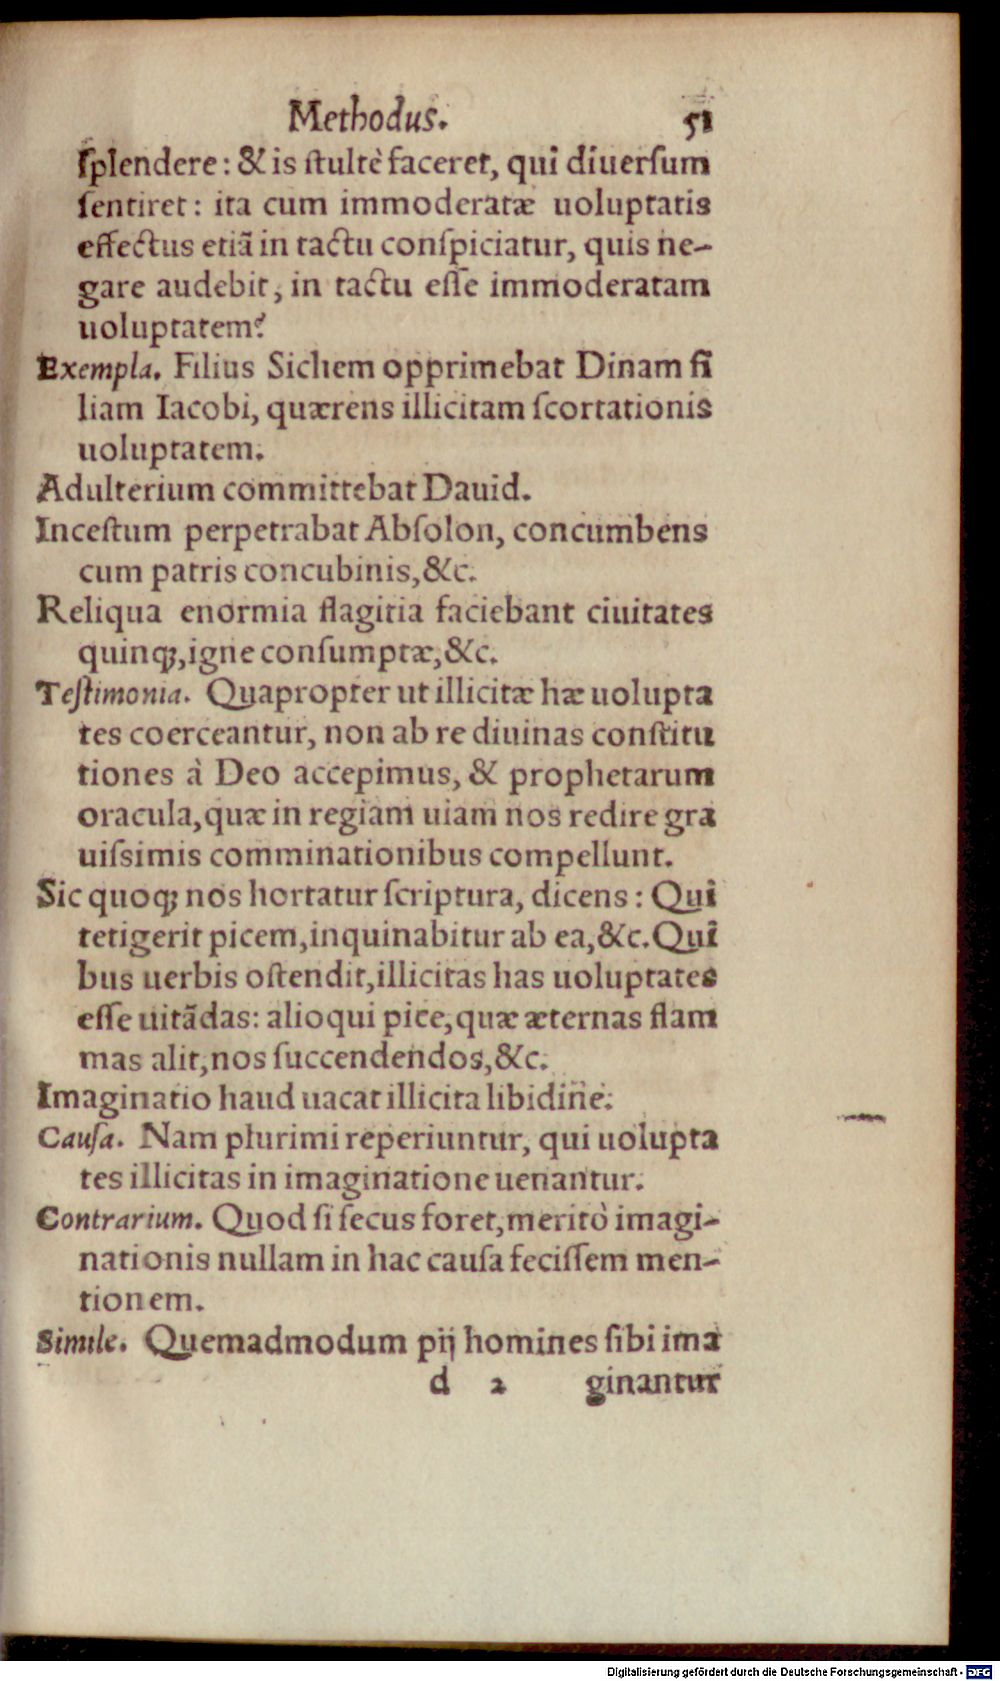 Methodus. 51
ſplendere: & is ſtultè faceret, qui diuerſum
ſentiret: ita cum immoderatæ uoluptatis
effectus etiã in tactu conſpiciatur, quis ne-
gare audebit, in tactu eſſe immoderatam
uoluptatem?
Exempla. Filius Sichem opprimebat Dinam fi
liam Iacobi, quærens illicitam ſcortationis
uoluptatem.
Adulterium committebat Dauid.
Inceſtum perpetrabat Abſolon, concumbens
cum patris concubinis, &c.
Reliqua enormia flagitia faciebant ciuitates
quinq;, igne conſumptæ, &c.
Teſtimonia. Quapropter ut illicitæ hæ uolupta
tes coerceantur, non ab re diuinas conſtitu
tiones à Deo accepimus, & prophetarum
oracula, quæ in regiam uiam nos redire gra
uiſsimis comminationibus compellunt.
Sic quoq; nos hortatur ſcriptura, dicens: Qui
tetigerit picem, inquinabitur ab ea, &c. Qui
bus uerbis oſtendit, illicitas has uoluptates
eſſe uitãdas: alioqui pice, quæ æternas flam
mas alit, nos ſuccendendos, &c.
Imaginatio haud uacat illicita libidine.
Cauſa. Nam plurimi reperiuntur, qui uolupta
tes illicitas in imaginatione uenantur.
Contrarium. Quod ſi ſecus foret, meritò imagi-
nationis nullam in hac cauſa feciſſem men-
tionem.
Simile. Quemadmodum pij homines ſibi ima
d 2 ginantur
Digitalisierung gefördert durch die Deutsche Forschungsgemeinschaft - DFG